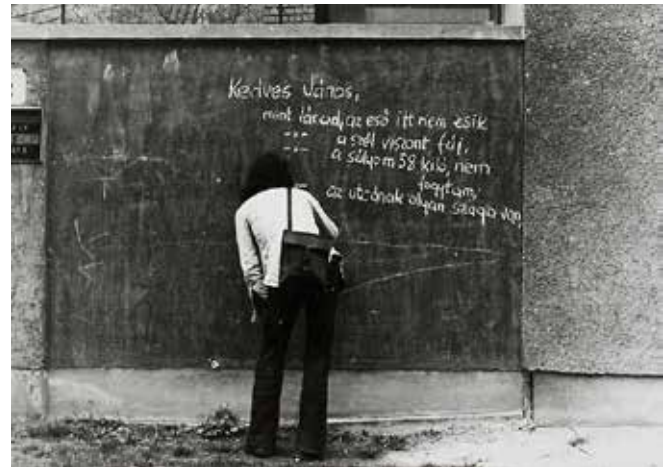 Kedves János,
mint látod, az eső itt nem esik
a szél viszont fúj,
a súlyom 58 kiló, nem
fogytam,
az utcának olyan szaga van,